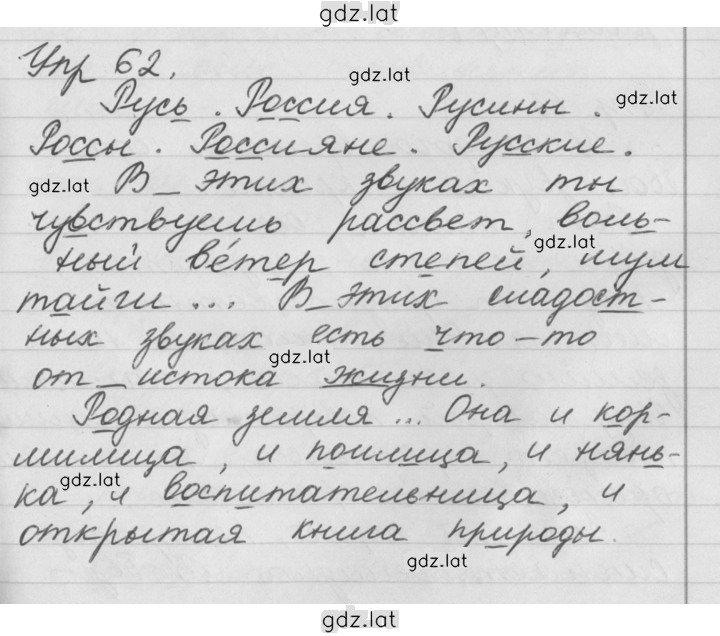 gdz.lat
Упр 62.
gdz.lat
Русь. Россия. Русины.
gdz.lat
Россы. Россияне. Русские.
gdz.lat
В этих звуках ты
чувствуешь рассвет, воль-
gdz.lat
ный ветер степей, шум
тайги... В этих сладост-
ных звуках есть что-то
gdz.lat
от истока жизни.
Родная земля... Она и кор-
милица, и поилица, и нянь-
gdz.lat
ка, и воспитательница, и
открытая книга природы.
gdz.lat
gdz.lat